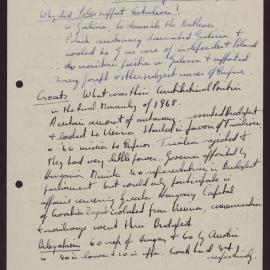 Why did Poles support Centralism?
in Galicia, to diminish the Ruthenes.
Polish aristocracy dominated Galicia &
looked to G as core of independent Poland
position in Galicia & supported
Joseph other subject races of Empire.
Croats. What was their Constitutional Position
in the Dual Monarchy of 1968.
A certain amount of autonomy. resented Budapest
& looked to Vienna. Started in favour of Trialism
to Emperor. Trialism rejected &
they had very little power. Governor appointed by
Hungarian Ministr. 40 representatives in Budapest
parliament but could only participate in
affairs concerning Greater Hungary. Capital
of Croatia Zagreb isolated from Vienna, communication
& railways went thro Budapest
Delegations 60 rep of Hungary & 60 by Austria
in 40 in Lower & 20 in upper. Croats had 4 & 1
respectively.